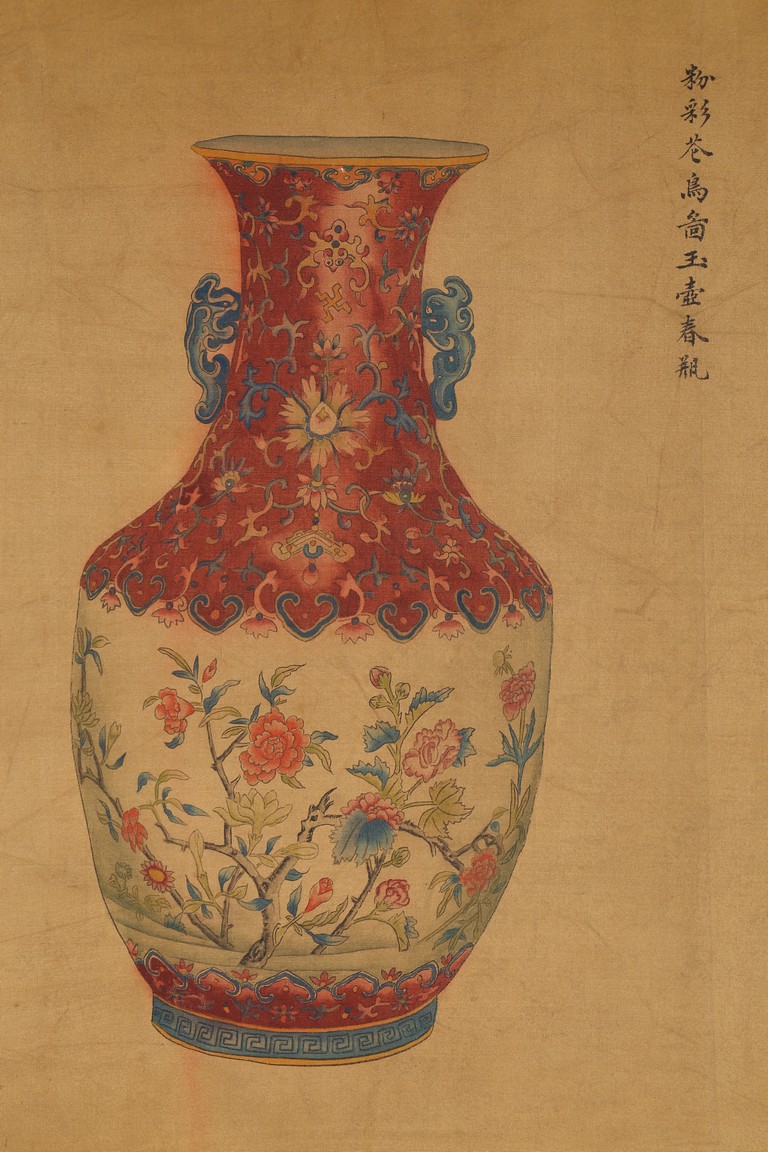 粉彩花鳥啚玉壺春瓶